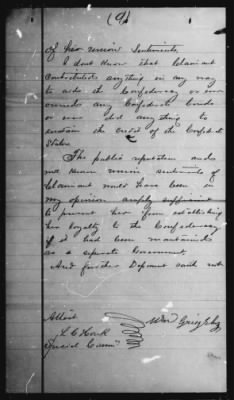 (9)
of her union Sentiments.
I dont know that Claimant
contributed anything in any way
to aid the Confederacy or ever
owned any Confederate bonds
or ever did any thing to
sustain the credit of the Confedrt
States
The public reputation and
well known union sentiments of
Claimant would have been in
my opinion amply sufficient
to prevent her from establishing
her loyalty to the Confederacy
if it had been maintained
as a seperate Government.
And further Deponent saith not
Attest
L C Houk
Special Comr